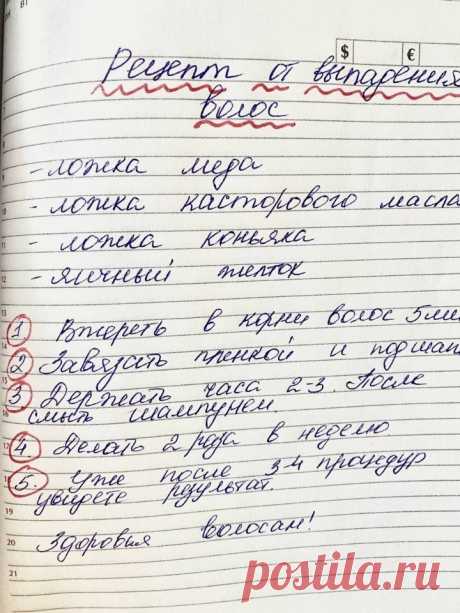 $ €
Рецепт от выпадения
волос
- ложка меда
- ложка касторового масла
- ложка коньяка
- яичный желток
1 Втереть в корни волос 5 ми
2 Завязать пленкой и под шап
3 Держать часа 2-3. После
смыть шампунем.
4. Делать 2 раза в неделю.
5. Уже после 3-4 процедур
увидете результат.
Здоровья волосам!
9
10
11
12
13
14
15
16
17
18
19
20
21
postila.ru